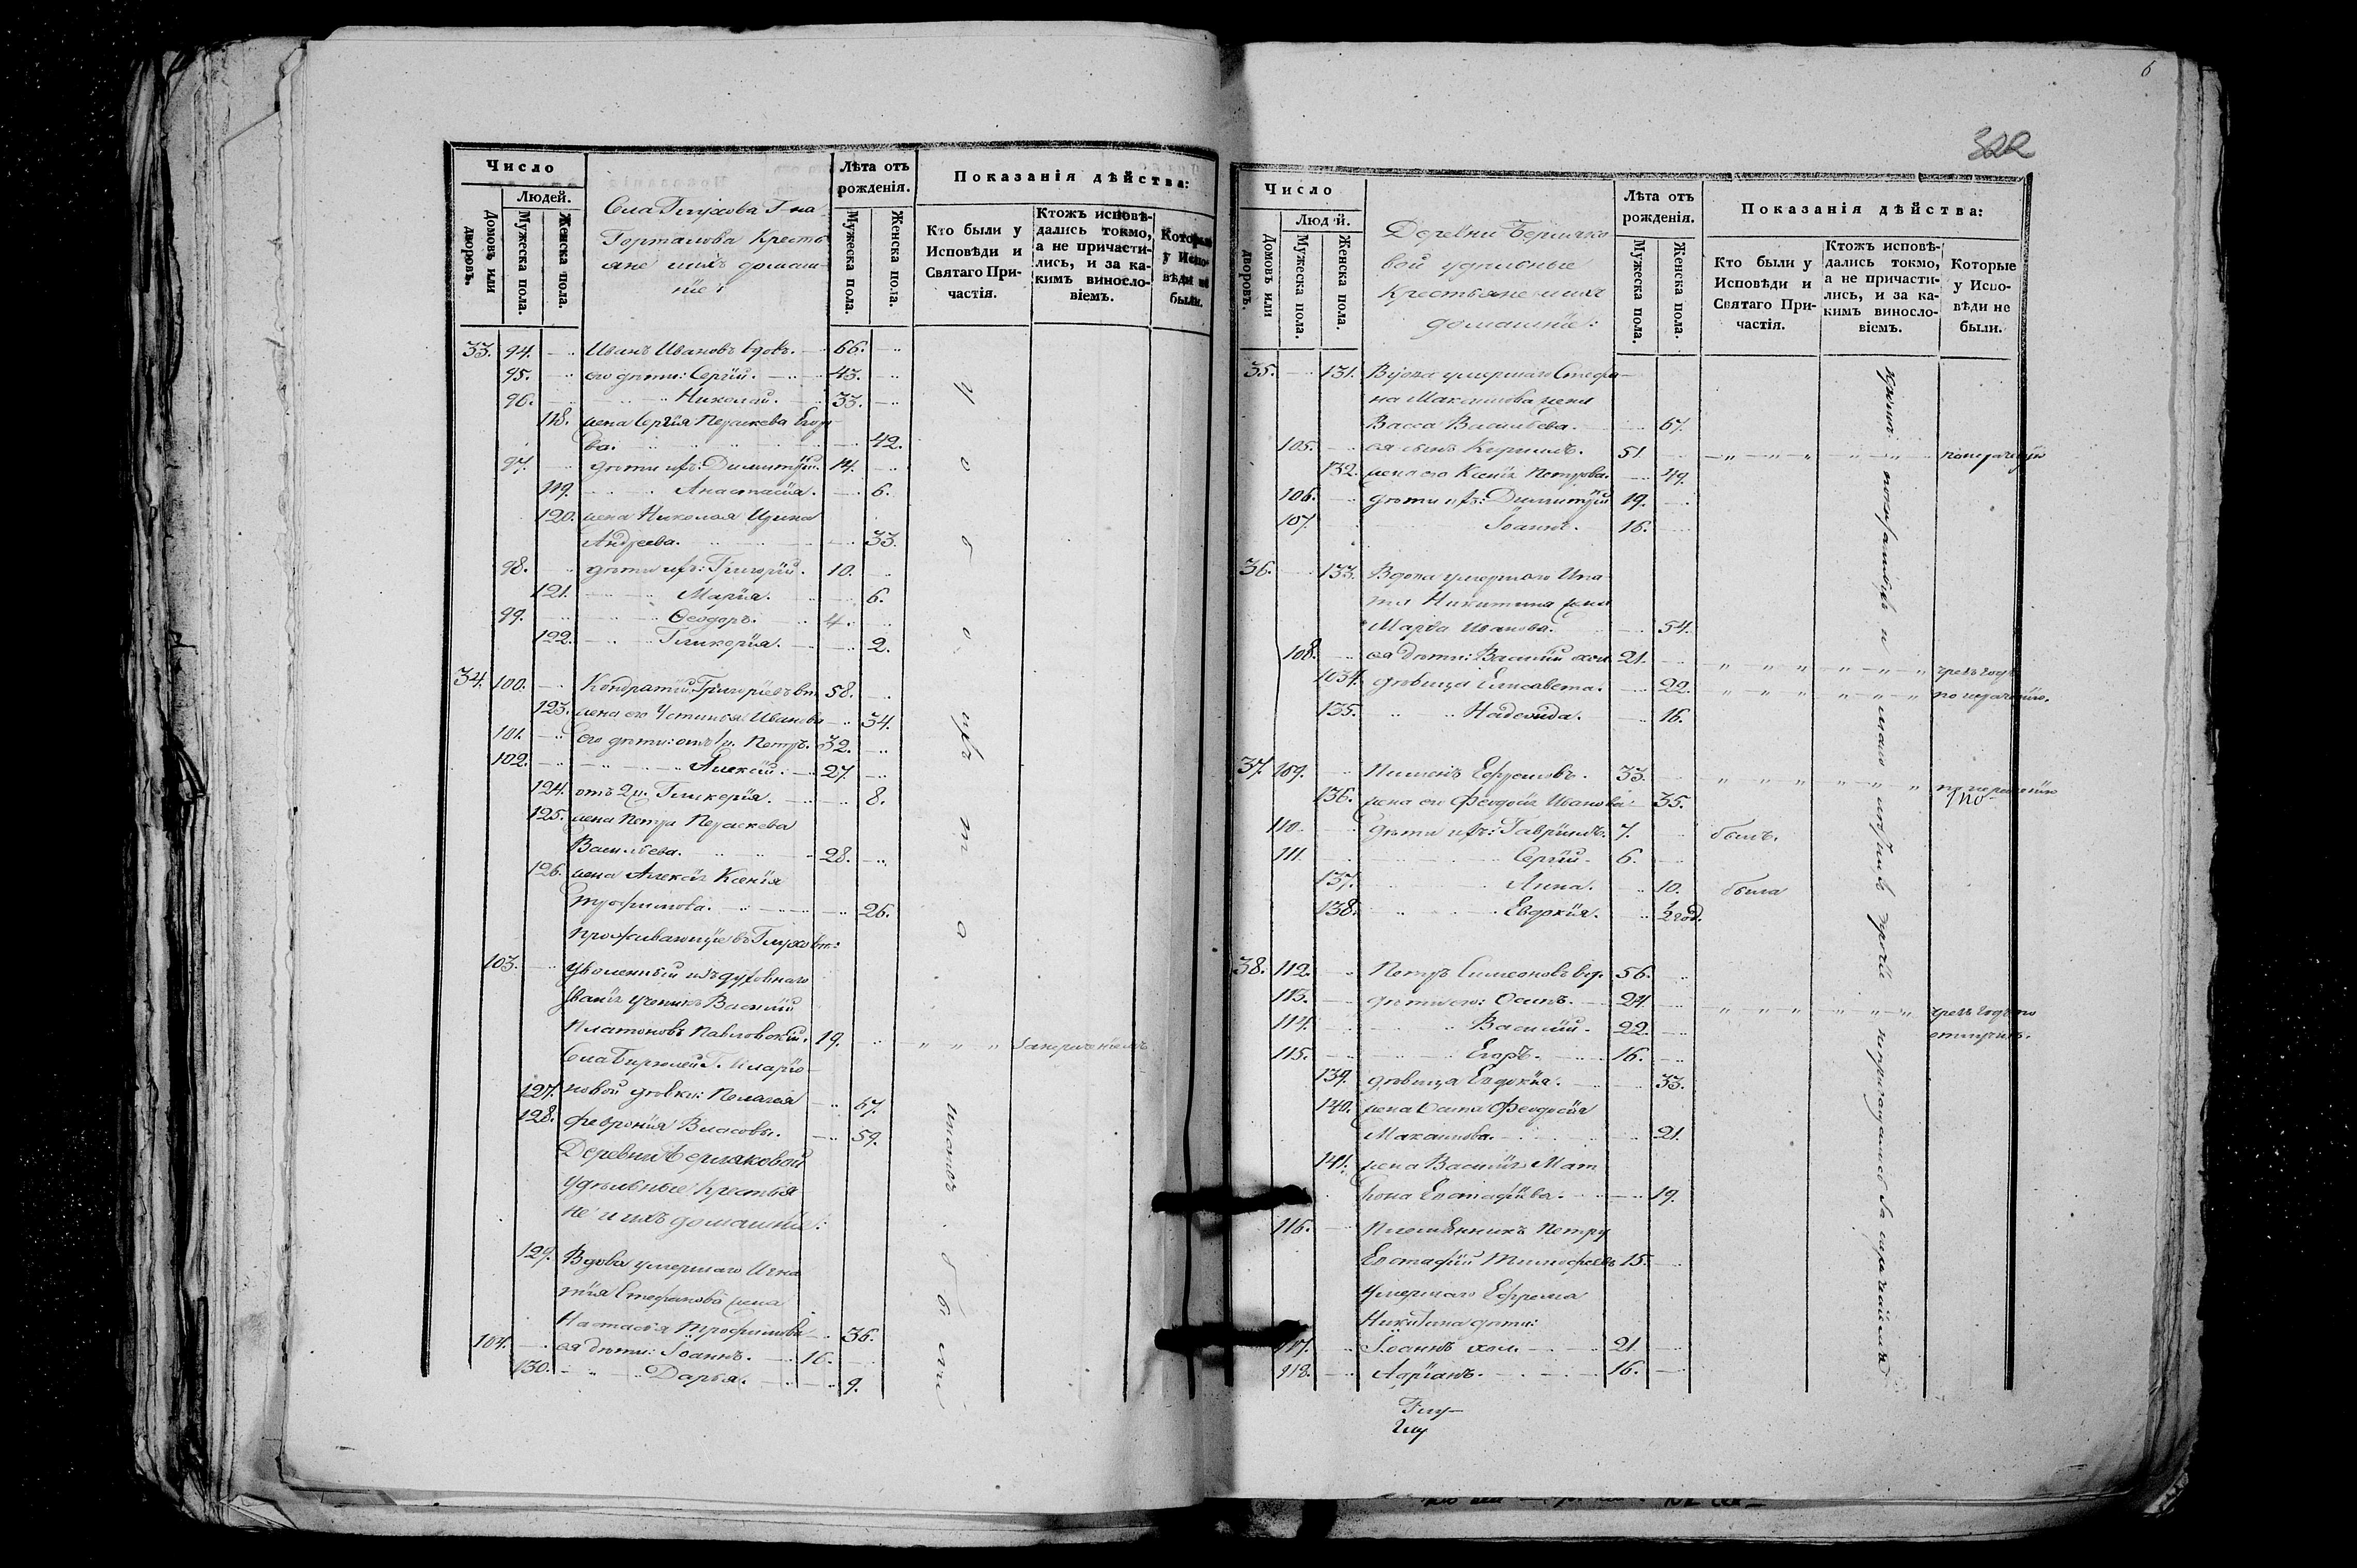 Число
Людей.
Домовъ или дворовъ.
Мужеска пола.
Женска пола.
Села Глухова Г-на
Горталова Кресть
яне и ихъ домаш-
ніе:
Лѣта отъ
рожденія.
Мужеска пола.
Женска пола.
Показанія дѣйства:
Кто были у
Исповѣди и
Святаго При-
частія.
Ктожъ исповѣ-
дались токмо,
а не причасти-
лись, и за ка-
кимъ виносло-
віемъ.
Которые
у Испо-
вѣди не
были.
33. 94. Иванъ Ивановъ вдовъ. 66.
95. его дѣти: Сергій. 43.
96. Николай. 33.
118. жена Сергія Параскева Егоро
ва. 42.
97. дѣти ихъ: Димитрій. 14.
119. Анастасія. 6.
120. жена Николая Ирина
Андреева. 33.
98. дѣти ихъ: Григорій. 10.
121. Марія. 6.
99. Ѳеодоръ. 4.
122. Гликерія. 2.
34. 100. Кондратій Григорьевъ 58.
123. жена его Устинья Иванова 34.
101. его дѣти: отъ 1 ж. Петръ. 32.
102. Алексій. 27.
124. отъ 2 ж. Гликерія. 8.
125. жена Петра Параскева
Васильева. 28.
126. жена Алексія Ксенія
Трофимова. 26.
Проживающіе въ Глуховѣ:
103. уволенный изъ духовнаго
званія ученикъ Василій
Платоновъ Павловскій. 19. " " "
Села Г. Иларіо-
новой дѣвки: 127. Пелагея 67.
128. Феврония Власовы. 59.
Деревни Берляковой
удѣльные крестья
не и ихъ домашніе:
129. Вдова умершаго Игна
тія Стефанова жена
Настасья Трофимова 36.
104. ея дѣти: Іоаннъ. 16.
130. Дарья. 9.
6
322
Число
Людей.
Домовъ или дворовъ.
Мужеска пола.
Женска пола.
Деревни Берляко
вой удѣльные
Крестьяне и ихъ
домашніе:
Лѣта отъ
рожденія.
Мужеска пола.
Женска пола.
Показанія дѣйства:
Кто были у
Исповѣди и
Святаго При-
частія.
Ктожъ исповѣ-
дались токмо,
а не причасти-
лись, и за ка-
кимъ виносло-
віемъ.
Которые
у Испо-
вѣди не
были.
35. 131. Вдова умершаго Стефа-
на Максимова жена
Васса Васильева. 67.
105. ея сынъ Кириллъ. 51. " " " " " "
132. жена его Ксенія Петрова. 49.
106. дѣти ихъ: Димитрій 19.
107. Іоаннъ. 16.
36. 133. Вдова умершаго Ипа
тія Никитина жена
Марѳа Иванова. 54.
108. ея дѣти: Василій хол. 21. " " " " " "
134. дѣвица Елисавета. 22. " " " " " " по нераченію.
135. Надежда. 16.
37. 109. Пименъ Ефремовъ. 33. " " " " " " по нераченію
136. жена его Феодосія Иванова 35.
110. дѣти ихъ: Гавріилъ. 7. былъ.
111. Сергій. 6.
137. Анна. 10. была
138. Евдокія. ½ год.
38. 112. Петръ Симеоновъ вд. 56.
113. дѣти его: Осипъ. 24. " " " " " "
114. Василій. 22.
115. Егоръ. 16.
139. дѣвица Евдокія. 33.
140. жена Осипа Феодосія
Максимова. 21.
141. жена Василія Мат
рона Евстафіева. 19.
116. Племянникъ Петру
Евстафій Тимофеевъ 15.
Умершаго Ефрема
Никитина дѣти:
117. Іоаннъ хол. 21
118. Адріанъ. 16.